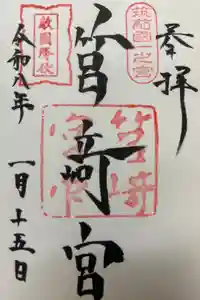 奉拝
筑前國一之宮
筥崎宮
敵國降伏
令和八年
一月十五日